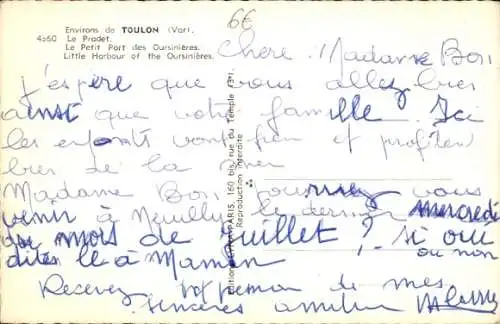 6€
Environs de TOULON (Var).
4560 Le Pradet.
Le Petit Port des Oursinières.
Little Harbour of the Oursinières.
Chère Madame Bon
J'espère que vous allez bien
ainsi que votre famille. Ici
les enfants vont bien et profitent
bien de la mer
Madame Bon pourriez vous
venir à Neuilly le dernier mercredi
du mois de Juillet ? si oui
ou non
dites le à Maman
Recevez de mes
sincères
PARIS, 160 bis, rue du Temple (3e).
Reproduction interdite